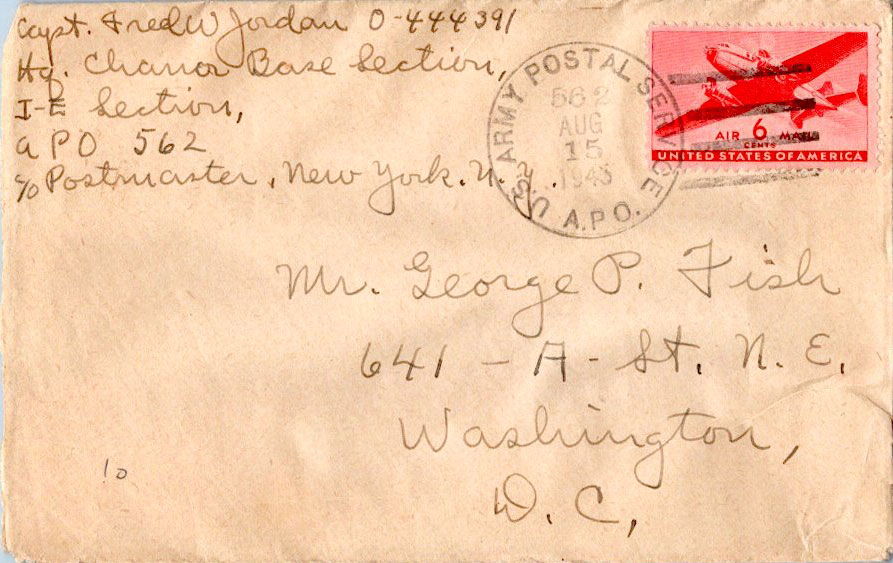 Capt. Fred W Jordan O-444391
Hq. Chanor Base Section,
I-E Section,
APO 562
c/o Postmaster, New York. N.Y.
U.S. ARMY POSTAL SERVICE
562
AUG
15
1945
A.P.O.
AIR 6 MAIL
CENTS
UNITED STATES OF AMERICA
Mr. George P. Fish
641 - A - St. N. E.
Washington,
D. C,
10